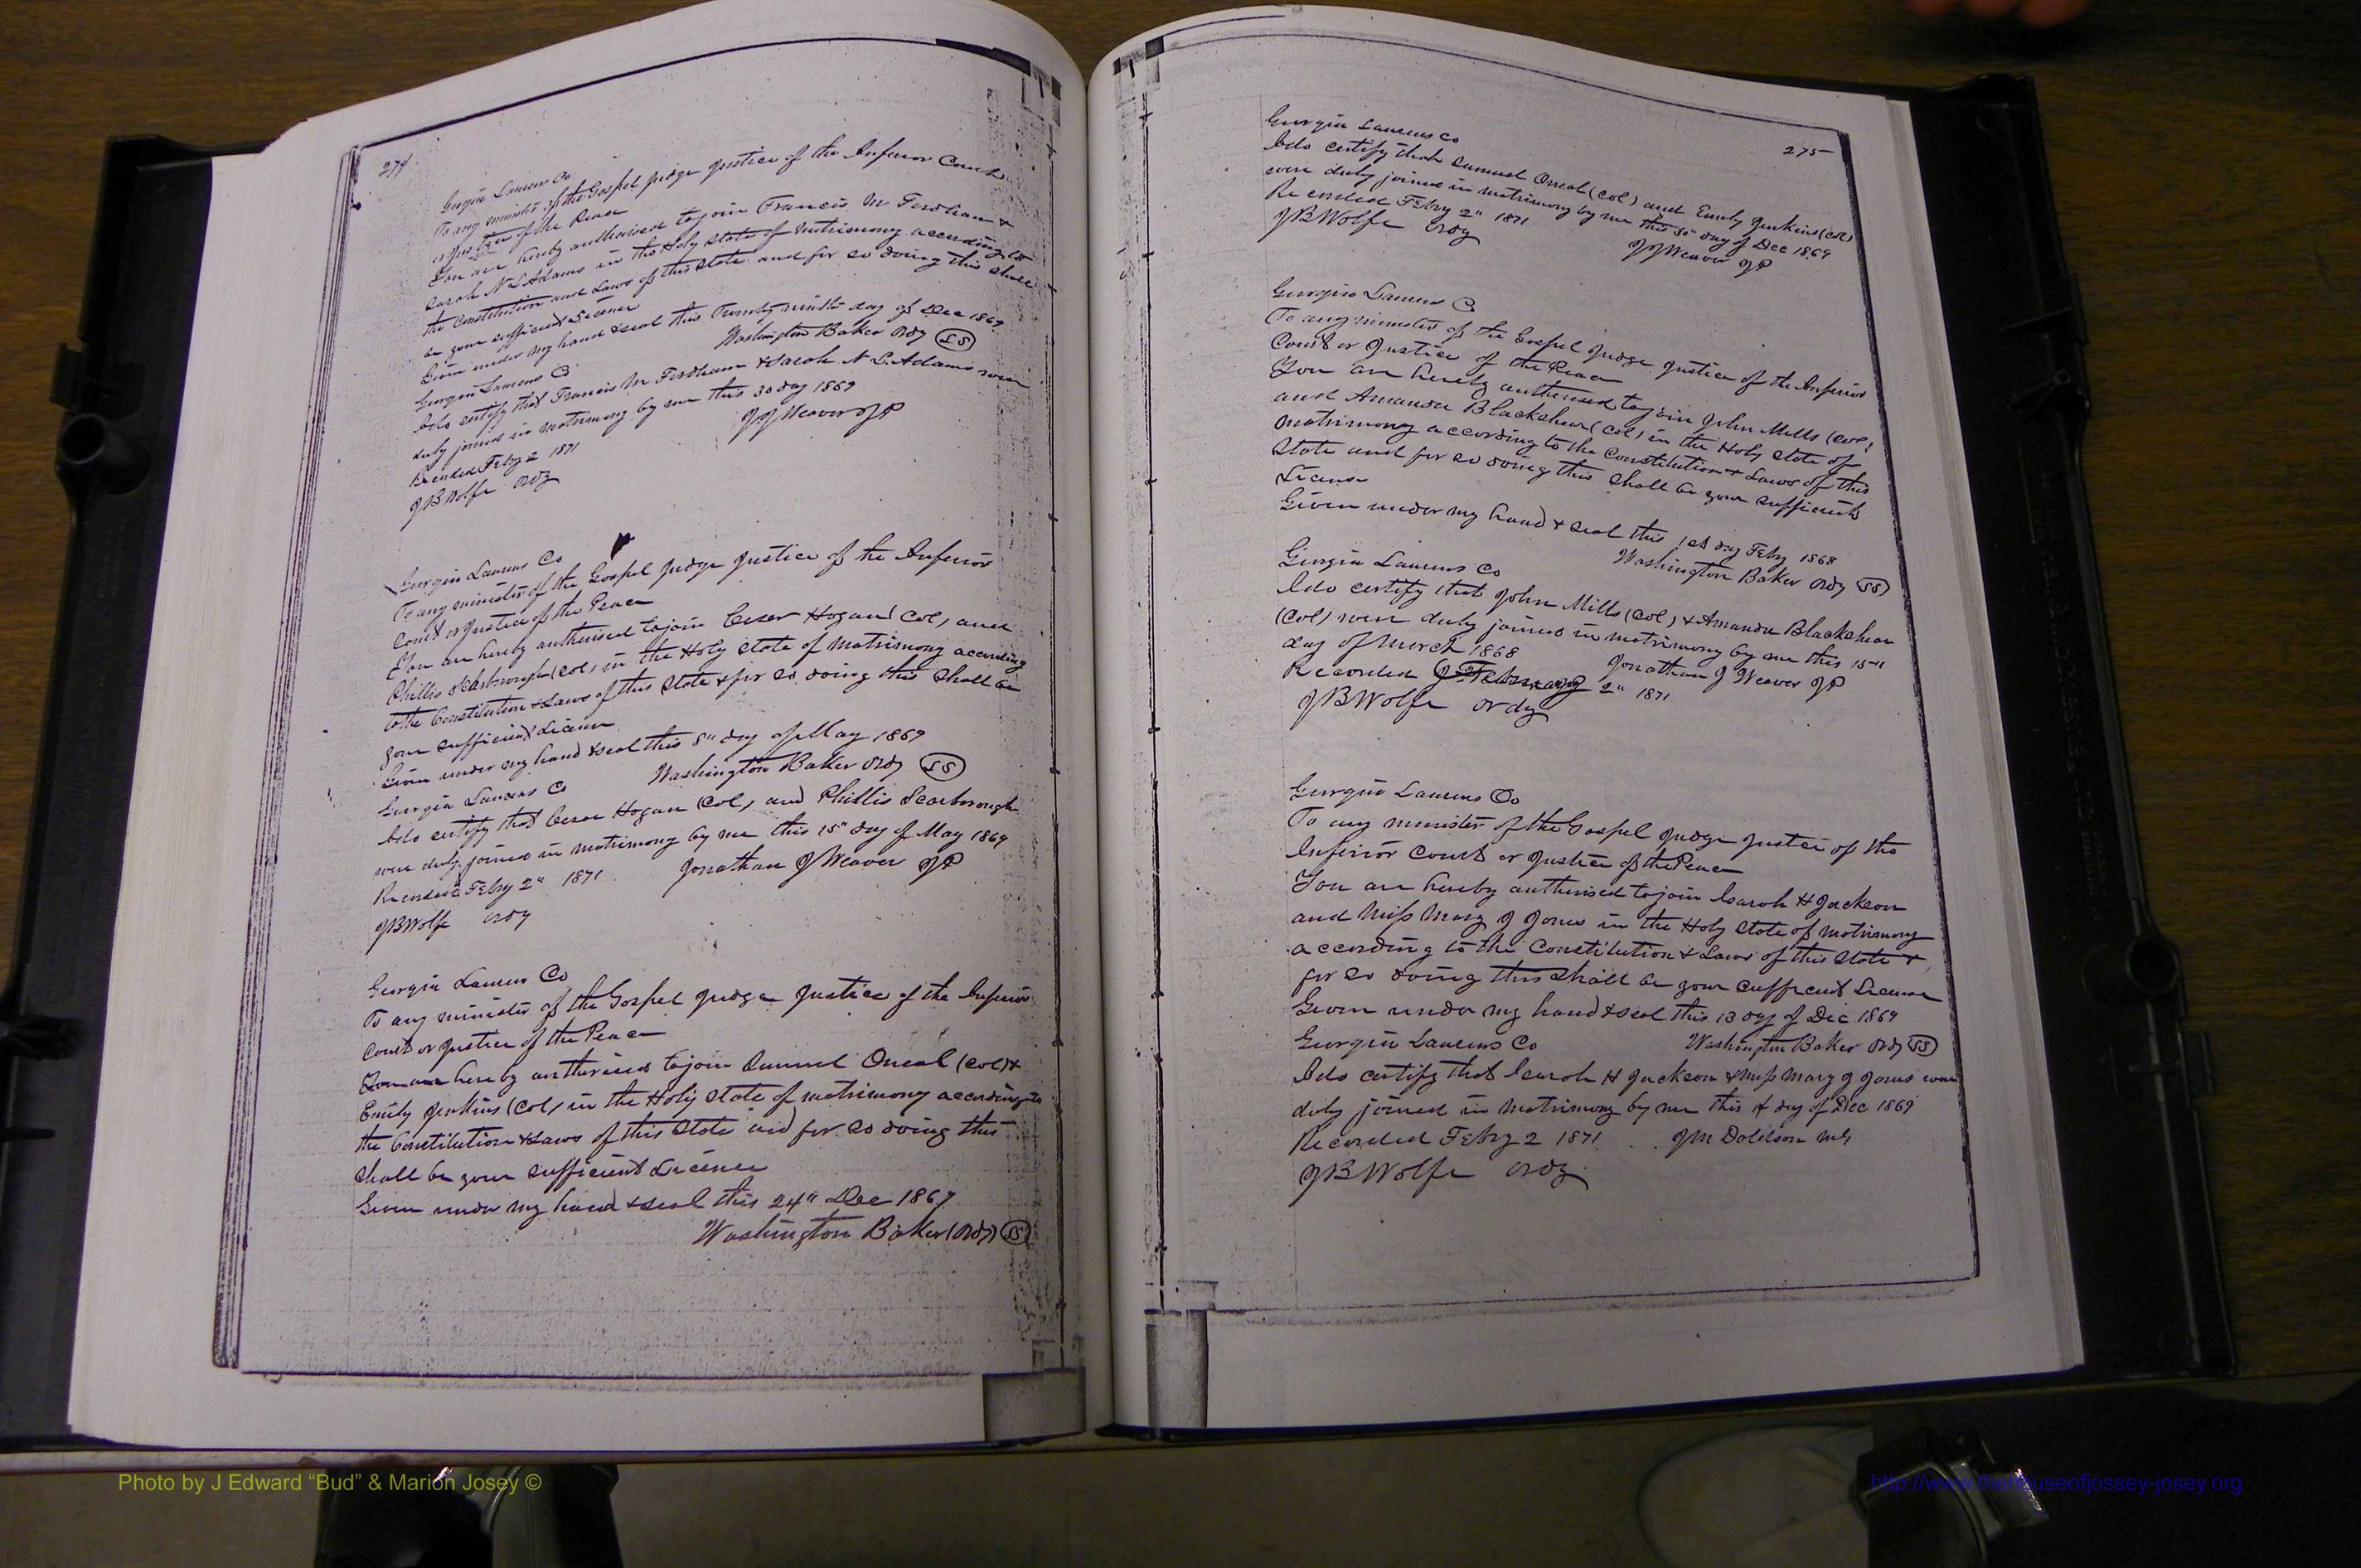 274
Georgia Laurens Co
To any minister of the Gospel Judge Justice of the Inferior Court
or Justice of the Peace
You are hereby authorised to join Francis M Fordham &
Sarah N L Adams in the Holy State of Matrimony according to
the Constitution and Laws of this State and for so doing this shall
be your sufficient License
Given under my hand & seal this Twenty ninth day of Dec 1869
Washington Baker Ordy LS
Georgia Laurens Co
I do certify that Francis M Fordham & Sarah N L Adams were
duly joined in matrimony by me this 30 day 1869
J J Weaver JP
Recorded Feby 2 1871
JB Wolfe Ordy
Georgia Laurens Co
To any minister of the Gospel Judge Justice of the Inferior
Court or Justice of the Peace
You are hereby authorised to join Ceser Hogan (Col) and
Phillis Scarborough (Col) in the Holy State of Matrimony according
to the Constitution & Laws of this State & for so doing this shall be
your sufficient License
Given under my hand & seal this 8" day of May 1869
Washington Baker Ordy LS
Georgia Laurens Co
I do certify that Ceser Hogan (Col) and Phillis Scarborough
were duly joined in matrimony by me this 15" day of May 1869
Jonathan J Weaver JP
Recorded Feby 2" 1871
JB Wolfe Ordy
Georgia Laurens Co
To any minister of the Gospel Judge Justice of the Inferior
Court or Justice of the Peace
You are hereby authorised to join Samuel Oneal (Col) &
Emily Jenkins (Col) in the Holy State of matrimony according to
the Constitution & Laws of this State and for so doing this
shall be your sufficient License
Given under my hand & seal this 24" Dec 1869
Washington Baker (Ordy) LS
275
Georgia Laurens Co
I do certify that Samuel Oneal (Col) and Emily Jenkins (Col)
were duly joined in matrimony by me this 30" day of Dec 1869
J J Weaver JP
Recorded Feby 2" 1871
JB Wolfe Ordy
Georgia Laurens Co
To any minister of the Gospel Judge Justice of the Inferior
Court or Justice of the Peace
You are hereby authorised to join John Mills (Col)
and Amanda Blackshear (Col) in the Holy State of
Matrimony according to the Constitution & Laws of this
State and for so doing this shall be your sufficient
License
Given under my hand & seal this 1st day Feby 1868
Washington Baker Ordy LS
Georgia Laurens Co
I do certify that John Mills (Col) & Amanda Blackshear
(Col) were duly joined in matrimony by me this 15"
day of March 1868
Jonathan J Weaver JP
Recorded February 2" 1871
JB Wolfe Ordy
Georgia Laurens Co
To any minister of the Gospel Judge Justice of the
Inferior Court or Justice of the Peace
You are hereby authorised to join Isarah H Jackson
and Miss Mary J Jones in the Holy State of Matrimony
according to the Constitution & Laws of this State &
for so doing this shall be your sufficient License
Given under my hand & seal this 13 day of Dec 1869
Washington Baker Ordy LS
Georgia Laurens Co
I do certify that Isarah H Jackson & Miss Mary J Jones were
duly joined in Matrimony by me this day of Dec 1869
Recorded Feby 2 1871 JM Dolilson MG
JB Wolfe Ordy
Photo by J Edward “Bud” & Marion Josey ©
http://www.thehouseofjossey-josey.org